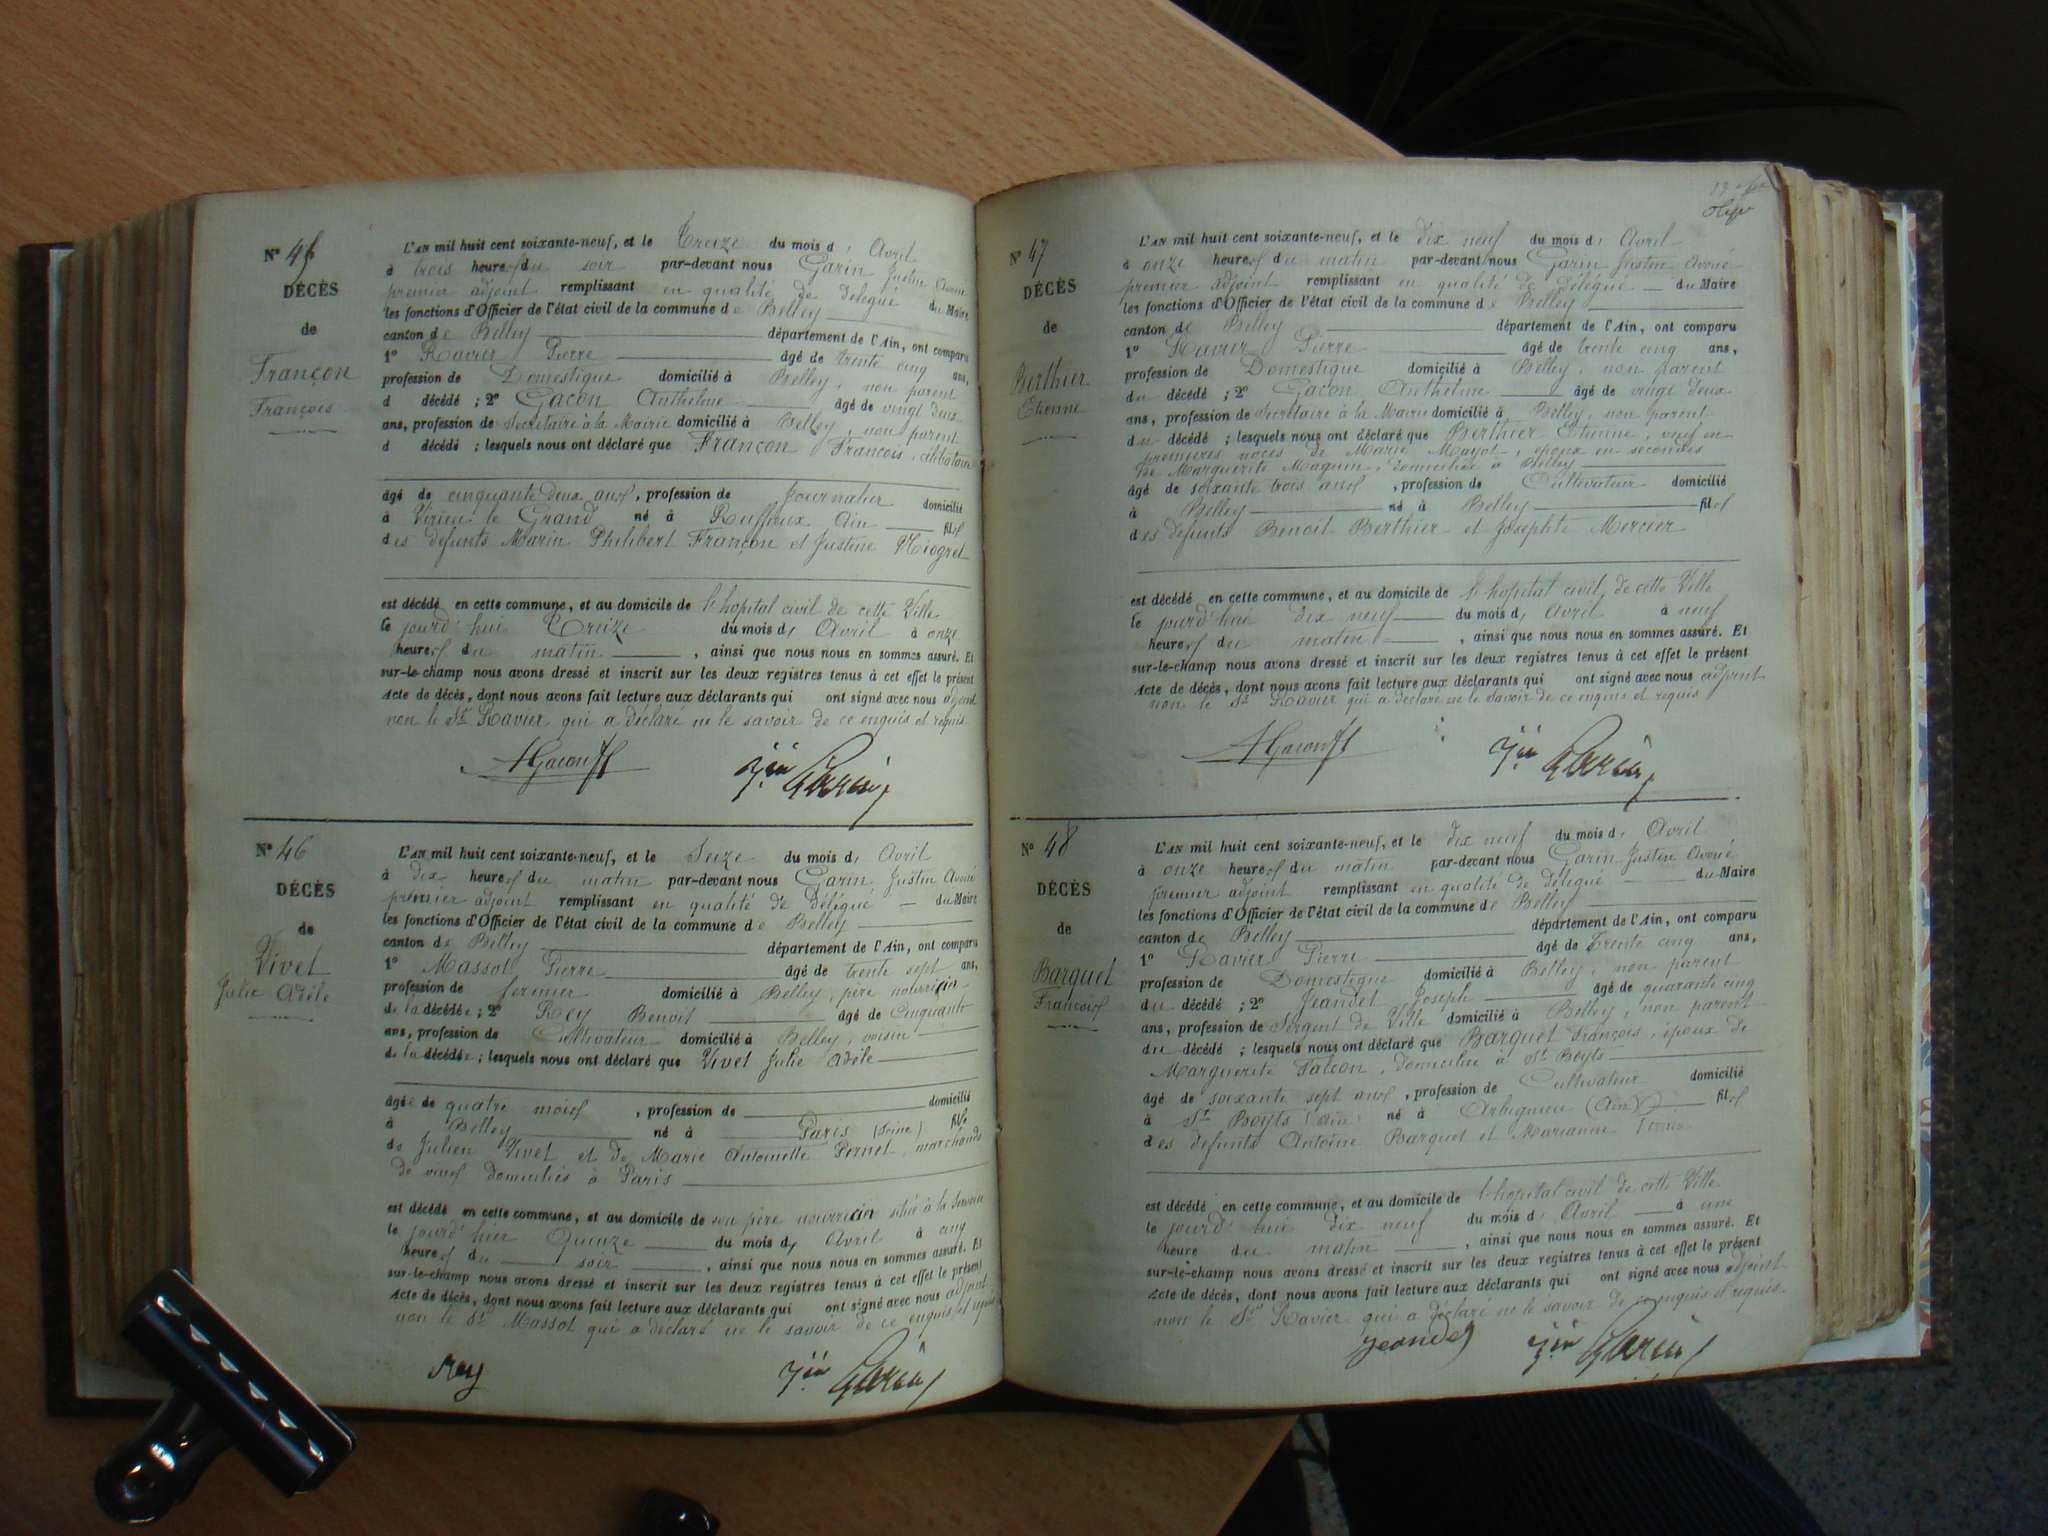 Nº 45
DÉCÈS
de
Françon
François
L'AN mil huit cent soixante-neuf, et le Treize du mois d' Avril
à trois heures du soir par-devant nous Garin Justin Avoué
premier adjoint remplissant en qualité de délégué du Maire
les fonctions d'Officier de l'état civil de la commune de Belley
canton de Belley département de l'Ain, ont comparu
1º Ravier Pierre âgé de trente cinq ans,
profession de Domestique domicilié à Belley, non parent
d décédé ; 2º Gacon Anthelme âgé de vingt deux
ans, profession de Secrétaire à la Mairie domicilié à Belley, non parent
d décédé ; lesquels nous ont déclaré que Françon François, célibataire
âgé de cinquante deux ans, profession de Journalier domicilié
à Virieu le Grand né à Ruffieux Ain fils
des défunts Marin Philibert Françon et Justine Miogret
est décédé en cette commune, et au domicile de l'hopital civil de cette Ville
le jourd'hui Treize du mois d' Avril à onze
heures du matin, ainsi que nous nous en sommes assuré. Et
sur-le-champ nous avons dressé et inscrit sur les deux registres tenus à cet effet le présent
Acte de décès, dont nous avons fait lecture aux déclarants qui ont signé avec nous adjoint
non le Sr Ravier qui a déclaré ne le savoir de ce enquis et requis
AGacon Jin Garin
Nº 46
DÉCÈS
de
Vivet
Julie Adèle
L'AN mil huit cent soixante-neuf, et le Seize du mois d' Avril
à dix heures du matin par-devant nous Garin Justin Avoué
premier adjoint remplissant en qualité de délégué du Maire
les fonctions d'Officier de l'état civil de la commune de Belley
canton de Belley département de l'Ain, ont comparu
1º Massot Pierre âgé de trente sept ans,
profession de fermier domicilié à Belley, père nourricier
de la décédée ; 2º Rey Benoit âgé de Cinquante
ans, profession de Cultivateur domicilié à Belley, voisin
de la décédée ; lesquels nous ont déclaré que Vivet Julie Adèle
âgée de quatre mois, profession de domicilié
à Belley né à Paris (Seine) fille
de Julien Vivet et de Marie Antoinette Pernet, marchands
de vins domiciliés à Paris
est décédé en cette commune, et au domicile de son père nourricier situé à la
le jourd'hier Quinze du mois d' Avril à cinq
heures du soir, ainsi que nous nous en sommes assuré. Et
sur-le-champ nous avons dressé et inscrit sur les deux registres tenus à cet effet le présent
Acte de décès, dont nous avons fait lecture aux déclarants qui ont signé avec nous adjoint
non le Sr Massot qui a déclaré ne le savoir de ce enquis et requis
Rey Jin Garin
Nº 47
DÉCÈS
de
Berthier
Etienne
L'AN mil huit cent soixante-neuf, et le dix neuf du mois d' Avril
à onze heures du matin par-devant nous Garin Justin Avoué
premier adjoint remplissant en qualité de délégué du Maire
les fonctions d'Officier de l'état civil de la commune de Belley
canton de Belley département de l'Ain, ont comparu
1º Ravier Pierre âgé de trente cinq ans,
profession de Domestique domicilié à Belley, non parent
du décédé ; 2º Gacon Anthelme âgé de vingt deux
ans, profession de Secrétaire à la Mairie domicilié à Belley, non parent
du décédé ; lesquels nous ont déclaré que Berthier Etienne, veuf en
premières noces de Marie Mayot, époux en secondes
de Marguerite Maquin, domiciliée à Belley
âgé de soixante trois ans, profession de Cultivateur domicilié
à Belley né à Belley fils
des défunts Benoit Berthier et Josephte Mercier
est décédé en cette commune, et au domicile de l'hopital civil de cette Ville
le jourd'hui dix neuf du mois d' Avril à neuf
heures du matin, ainsi que nous nous en sommes assuré. Et
sur-le-champ nous avons dressé et inscrit sur les deux registres tenus à cet effet le présent
Acte de décès, dont nous avons fait lecture aux déclarants qui ont signé avec nous adjoint
non le Sr Ravier qui a déclaré ne le savoir de ce enquis et requis
AGacon Jin Garin
Nº 48
DÉCÈS
de
Barquet
François
L'AN mil huit cent soixante-neuf, et le dix neuf du mois d' Avril
à onze heures du matin par-devant nous Garin Justin Avoué
premier adjoint remplissant en qualité de délégué du Maire
les fonctions d'Officier de l'état civil de la commune de Belley
canton de Belley département de l'Ain, ont comparu
1º Ravier Pierre âgé de Trente cinq ans,
profession de Domestique domicilié à Belley, non parent
du décédé ; 2º Jeandet Joseph âgé de quarante cinq
ans, profession de Sergent de Ville domicilié à Belley, non parent
du décédé ; lesquels nous ont déclaré que Barquet François, époux de
Marguerite Falcon, domiciliée à St Boyts
âgé de soixante sept ans, profession de Cultivateur domicilié
à St Boyts (Ain) né à Arbignieu (Ain) fils
des défunts Antoine Barquet et Marianne
est décédé en cette commune, et au domicile de l'hopital civil de cette Ville
le jourd'hui dix neuf du mois d' Avril à une
heure du matin, ainsi que nous nous en sommes assuré. Et
sur-le-champ nous avons dressé et inscrit sur les deux registres tenus à cet effet le présent
Acte de décès, dont nous avons fait lecture aux déclarants qui ont signé avec nous adjoint
non le Sr Ravier qui a déclaré ne le savoir de ce enquis et requis.
Jeandet Jin Garin